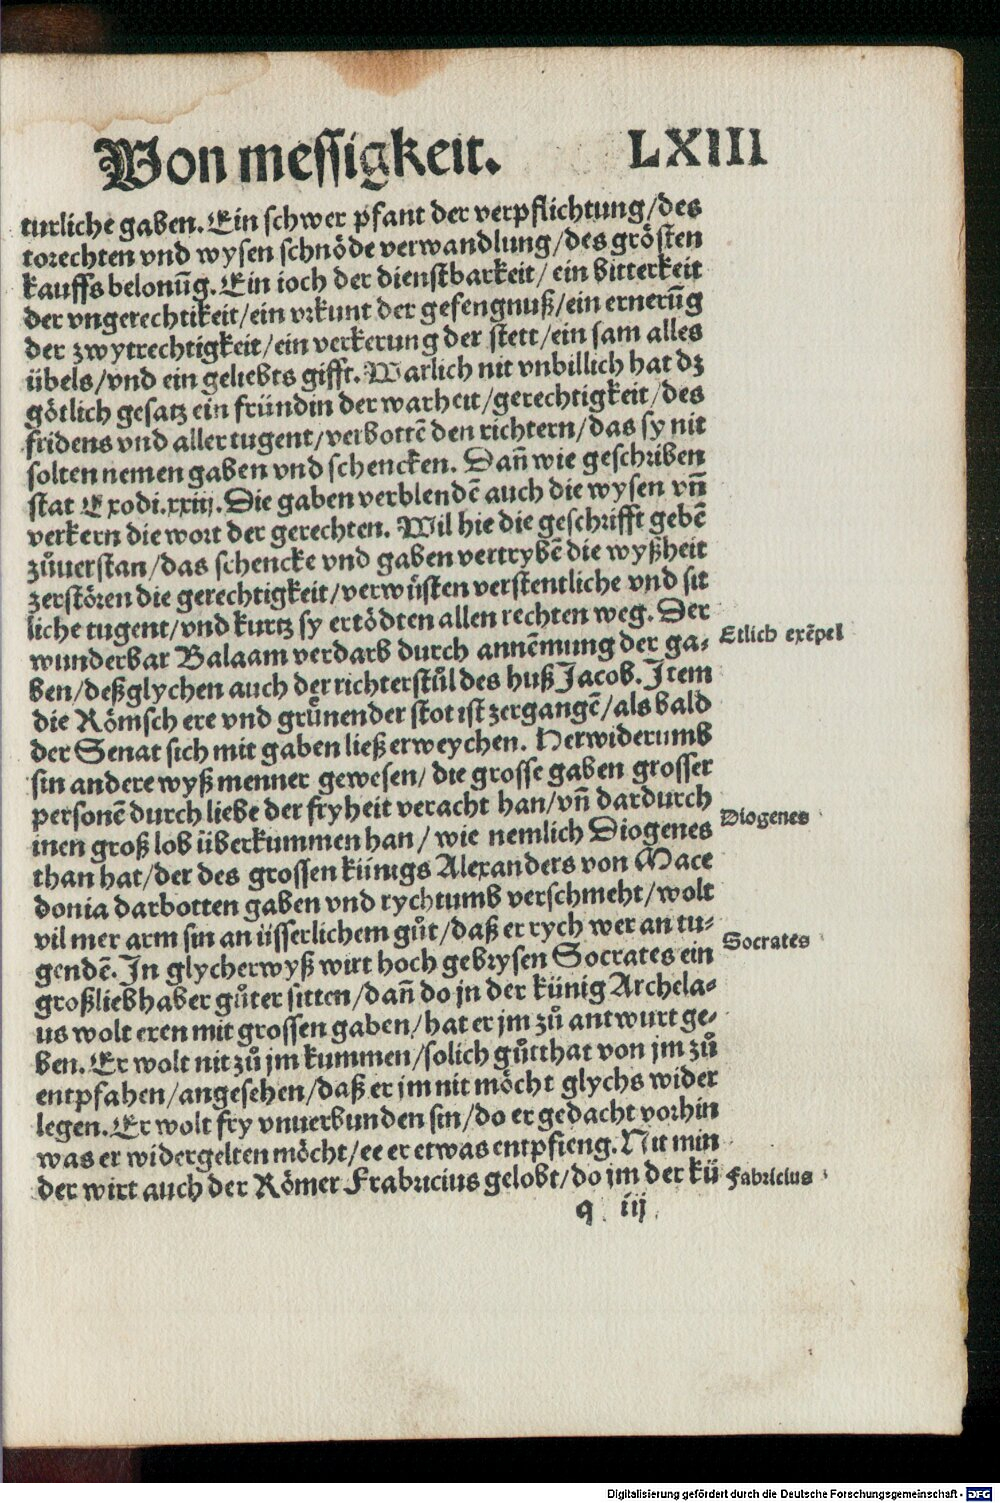 Von messigkeit. LXIII
turliche gaben. Ein schwer pfant der verpflichtung/des
torechten vnd wysen schnöde verwandlung/des grösten
kauffs belonūg. Ein ioch der dienstbarkeit/ ein bitterkeit
der vngerechtikeit/ein vrkunt der gefengnuß/ein ernerūg
der zwytrechtigkeit/ein verkerung der stett/ein sam alles
übels/vnd ein geliebts gifft. Warlich nit vnbillich hat dz
götlich gesatz ein fründin der warheit/gerechtigkeit/des
fridens vnd aller tugent/verbottē den richtern/das sy nit
solten nemen gaben vnd schencken. Dañ wie geschriben
stat Exodi.xxiij. Die gaben verblendē auch die wysen vñ
verkern die wort der gerechten. Wil hie die geschrifft gebē
zůuerstan/das schencke vnd gaben vertrybē die wyßheit
zerstören die gerechtigkeit/verwüsten verstentliche vnd sit
liche tugent/vnd kurtz sy ertödten allen rechten weg. Der
wunderbar Balaam verdarb durch annēmung der ga-
Etlich exēpel
ben/deßglychen auch der richterstůl des huß Jacob. Item
die Römsch ere vnd grůnender stot ist zergangē/als bald
der Senat sich mit gaben ließ erweychen. Herwiderumb
sin andere wyß menner gewesen/ die grosse gaben grosser
personē durch liebe der fryheit veracht han/vñ dardurch
inen groß lob überkummen han/ wie nemlich Diogenes
Diogenes
than hat/der des grossen künigs Alexanders von Mace
donia darbotten gaben vnd rychtumb verschmeht/wolt
vil mer arm sin an üsserlichem gůt/daß er rych wer an tu-
gendē. In glycherwyß wirt hoch gebrysen Socrates ein
Socrates
großliebhaber gůter sitten/dañ do jn der künig Archela-
us wolt eren mit grossen gaben/hat er jm zů antwurt ge-
ben. Er wolt nit zů jm kummen/solich gůtthat von jm zů
entpfahen/angesehen/daß er jm nit möcht glychs wider
legen. Er wolt fry vnuerbunden sin/do er gedacht vorhin
was er widergelten möcht/ee er etwas entpfieng. Nit min
der wirt auch der Römer Frabricius gelobt/do jm der kü
Fabricius
q iij
Digitalisierung gefördert durch die Deutsche Forschungsgemeinschaft - DFG